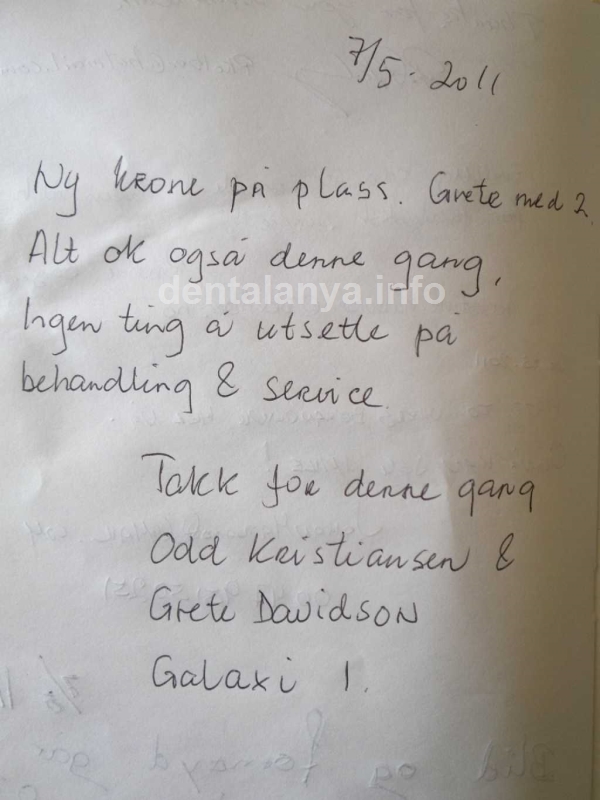 7/5 - 2011
Ny krone på plass. Grete med 2.
Alt ok også denne gang,
dentalanya.info
Ingen ting å utsette på
behandling & service
Takk for denne gang
Odd Kristiansen &
Grete Davidson
Galaxi 1.